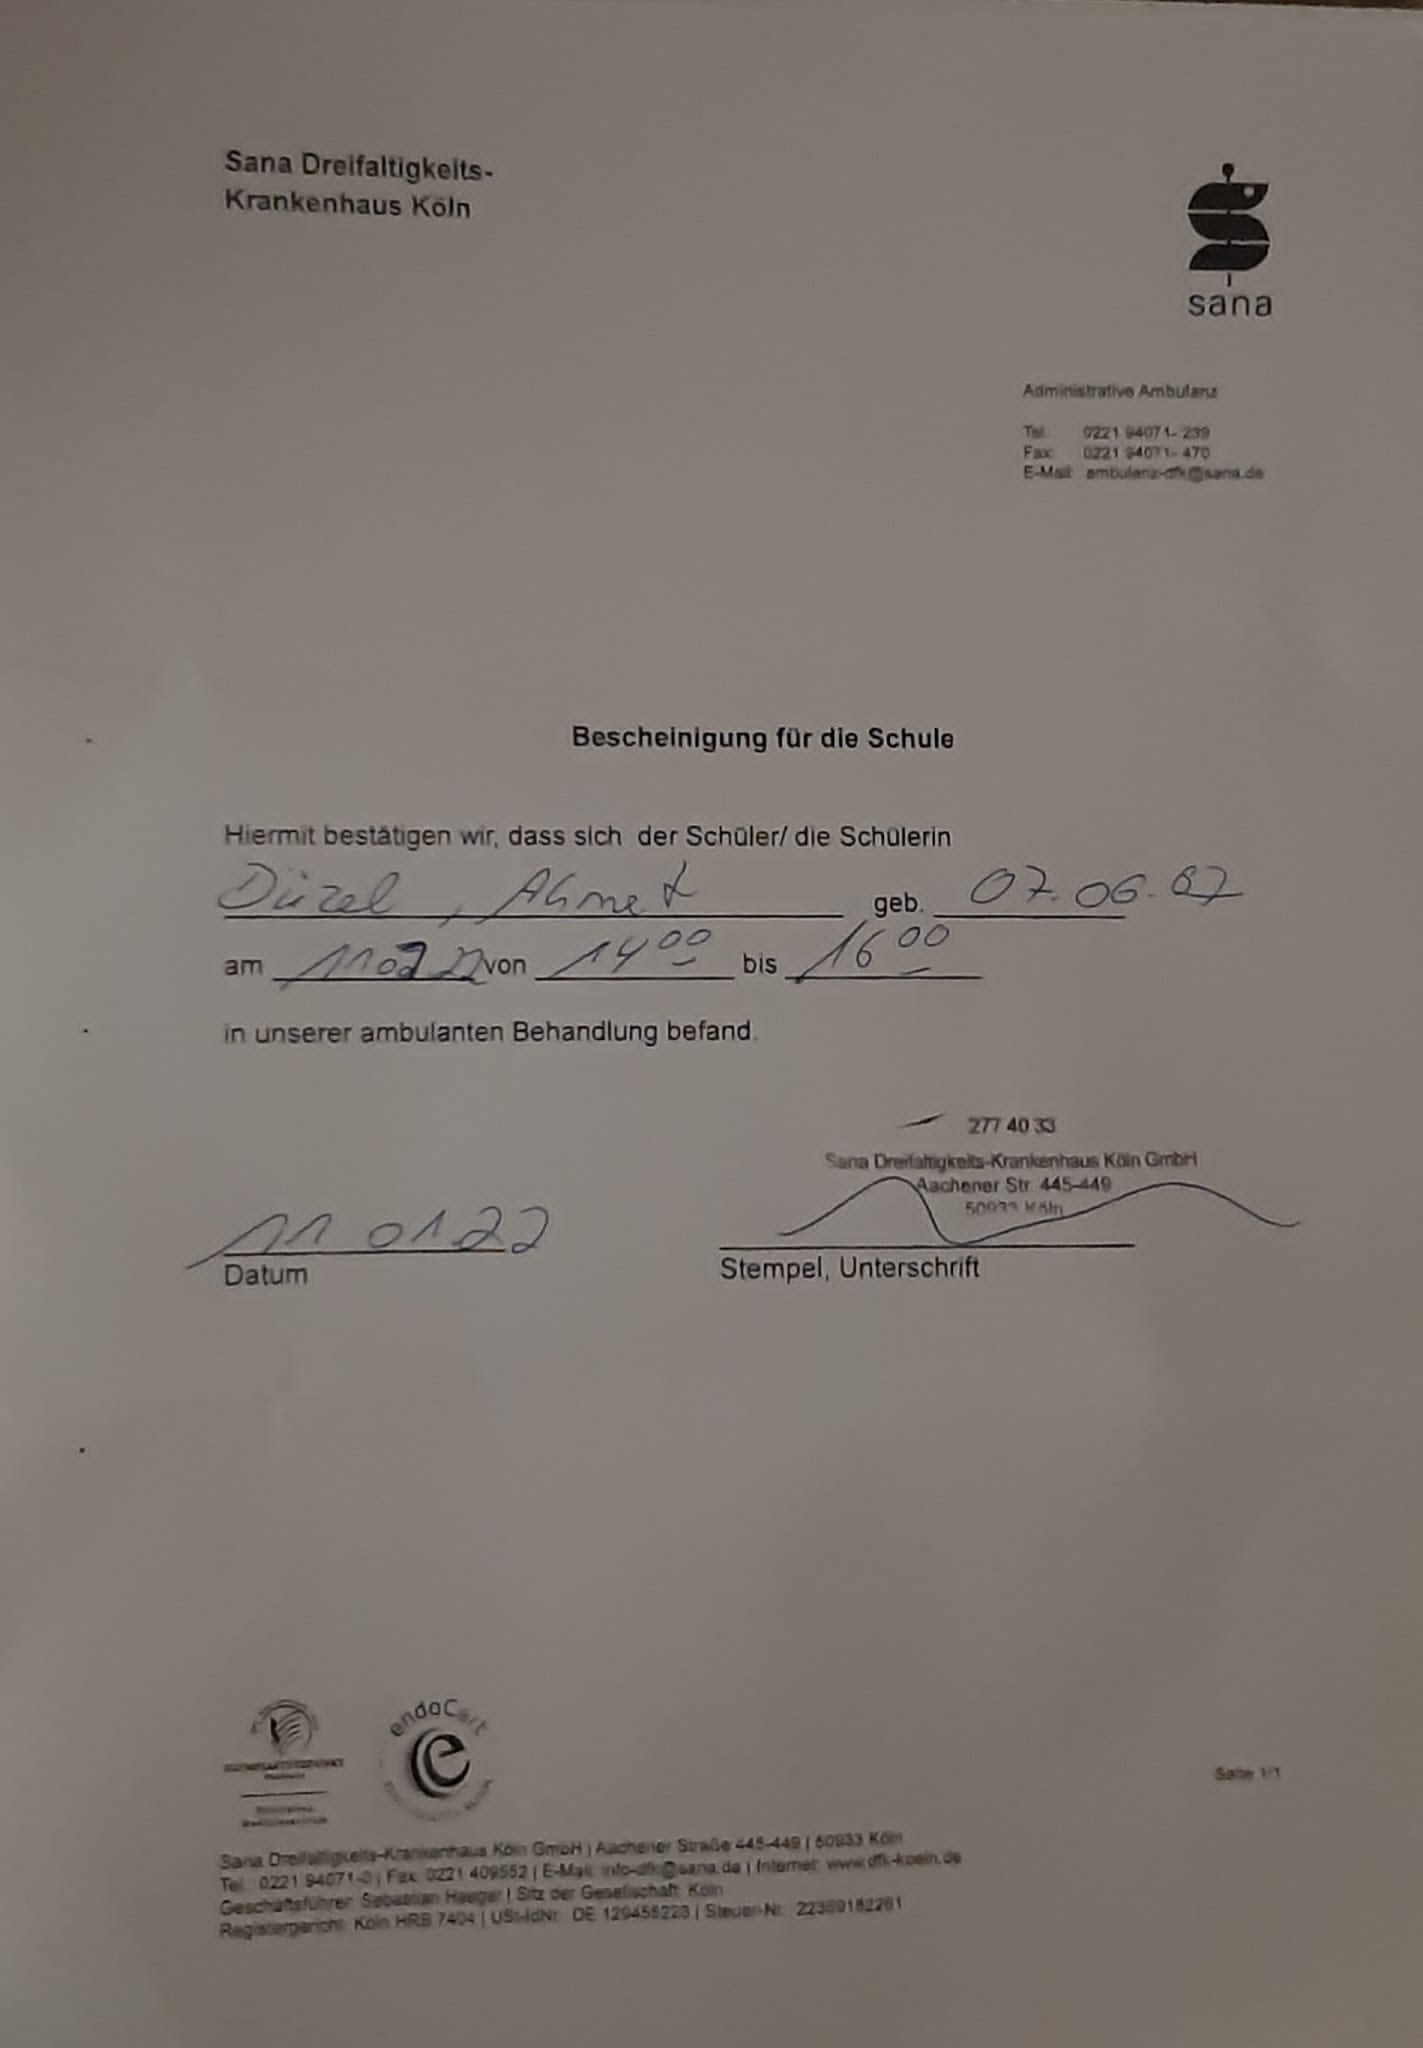 Sana Dreifaltigkeits-
Krankenhaus Köln
sana
Administrative Ambulanz
Tel. 0221 94071- 239
Fax: 0221 94071- 470
E-Mail: ambulanz-dfk@sana.de
Bescheinigung für die Schule
Hiermit bestätigen wir, dass sich der Schüler/ die Schülerin
Düzel, Ahmet geb. 07.06.87
am 11 22 von 14 00 bis 16 00
in unserer ambulanten Behandlung befand.
277 40 33
Sana Dreifaltigkeits-Krankenhaus Köln GmbH
Aachener Str. 445-449
50933 Köln
11 01 22
Datum
Stempel, Unterschrift
endoCert
e
Seite 1/1
Sana Dreifaltigkeits-Krankenhaus Köln GmbH | Aachener Straße 445-449 | 50933 Köln
Tel.: 0221 94071-0 | Fax: 0221 409552 | E-Mail: info-dfk@sana.de | Internet: www.dfk-koeln.de
Geschäftsführer: Sebastian Haeger | Sitz der Gesellschaft: Köln
Registergericht: Köln HRB 7404 | USt-IdNr.: DE 129455223 | Steuer-Nr.: